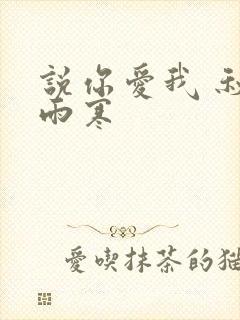 說你愛我
雨寒
愛喫抹茶的貓